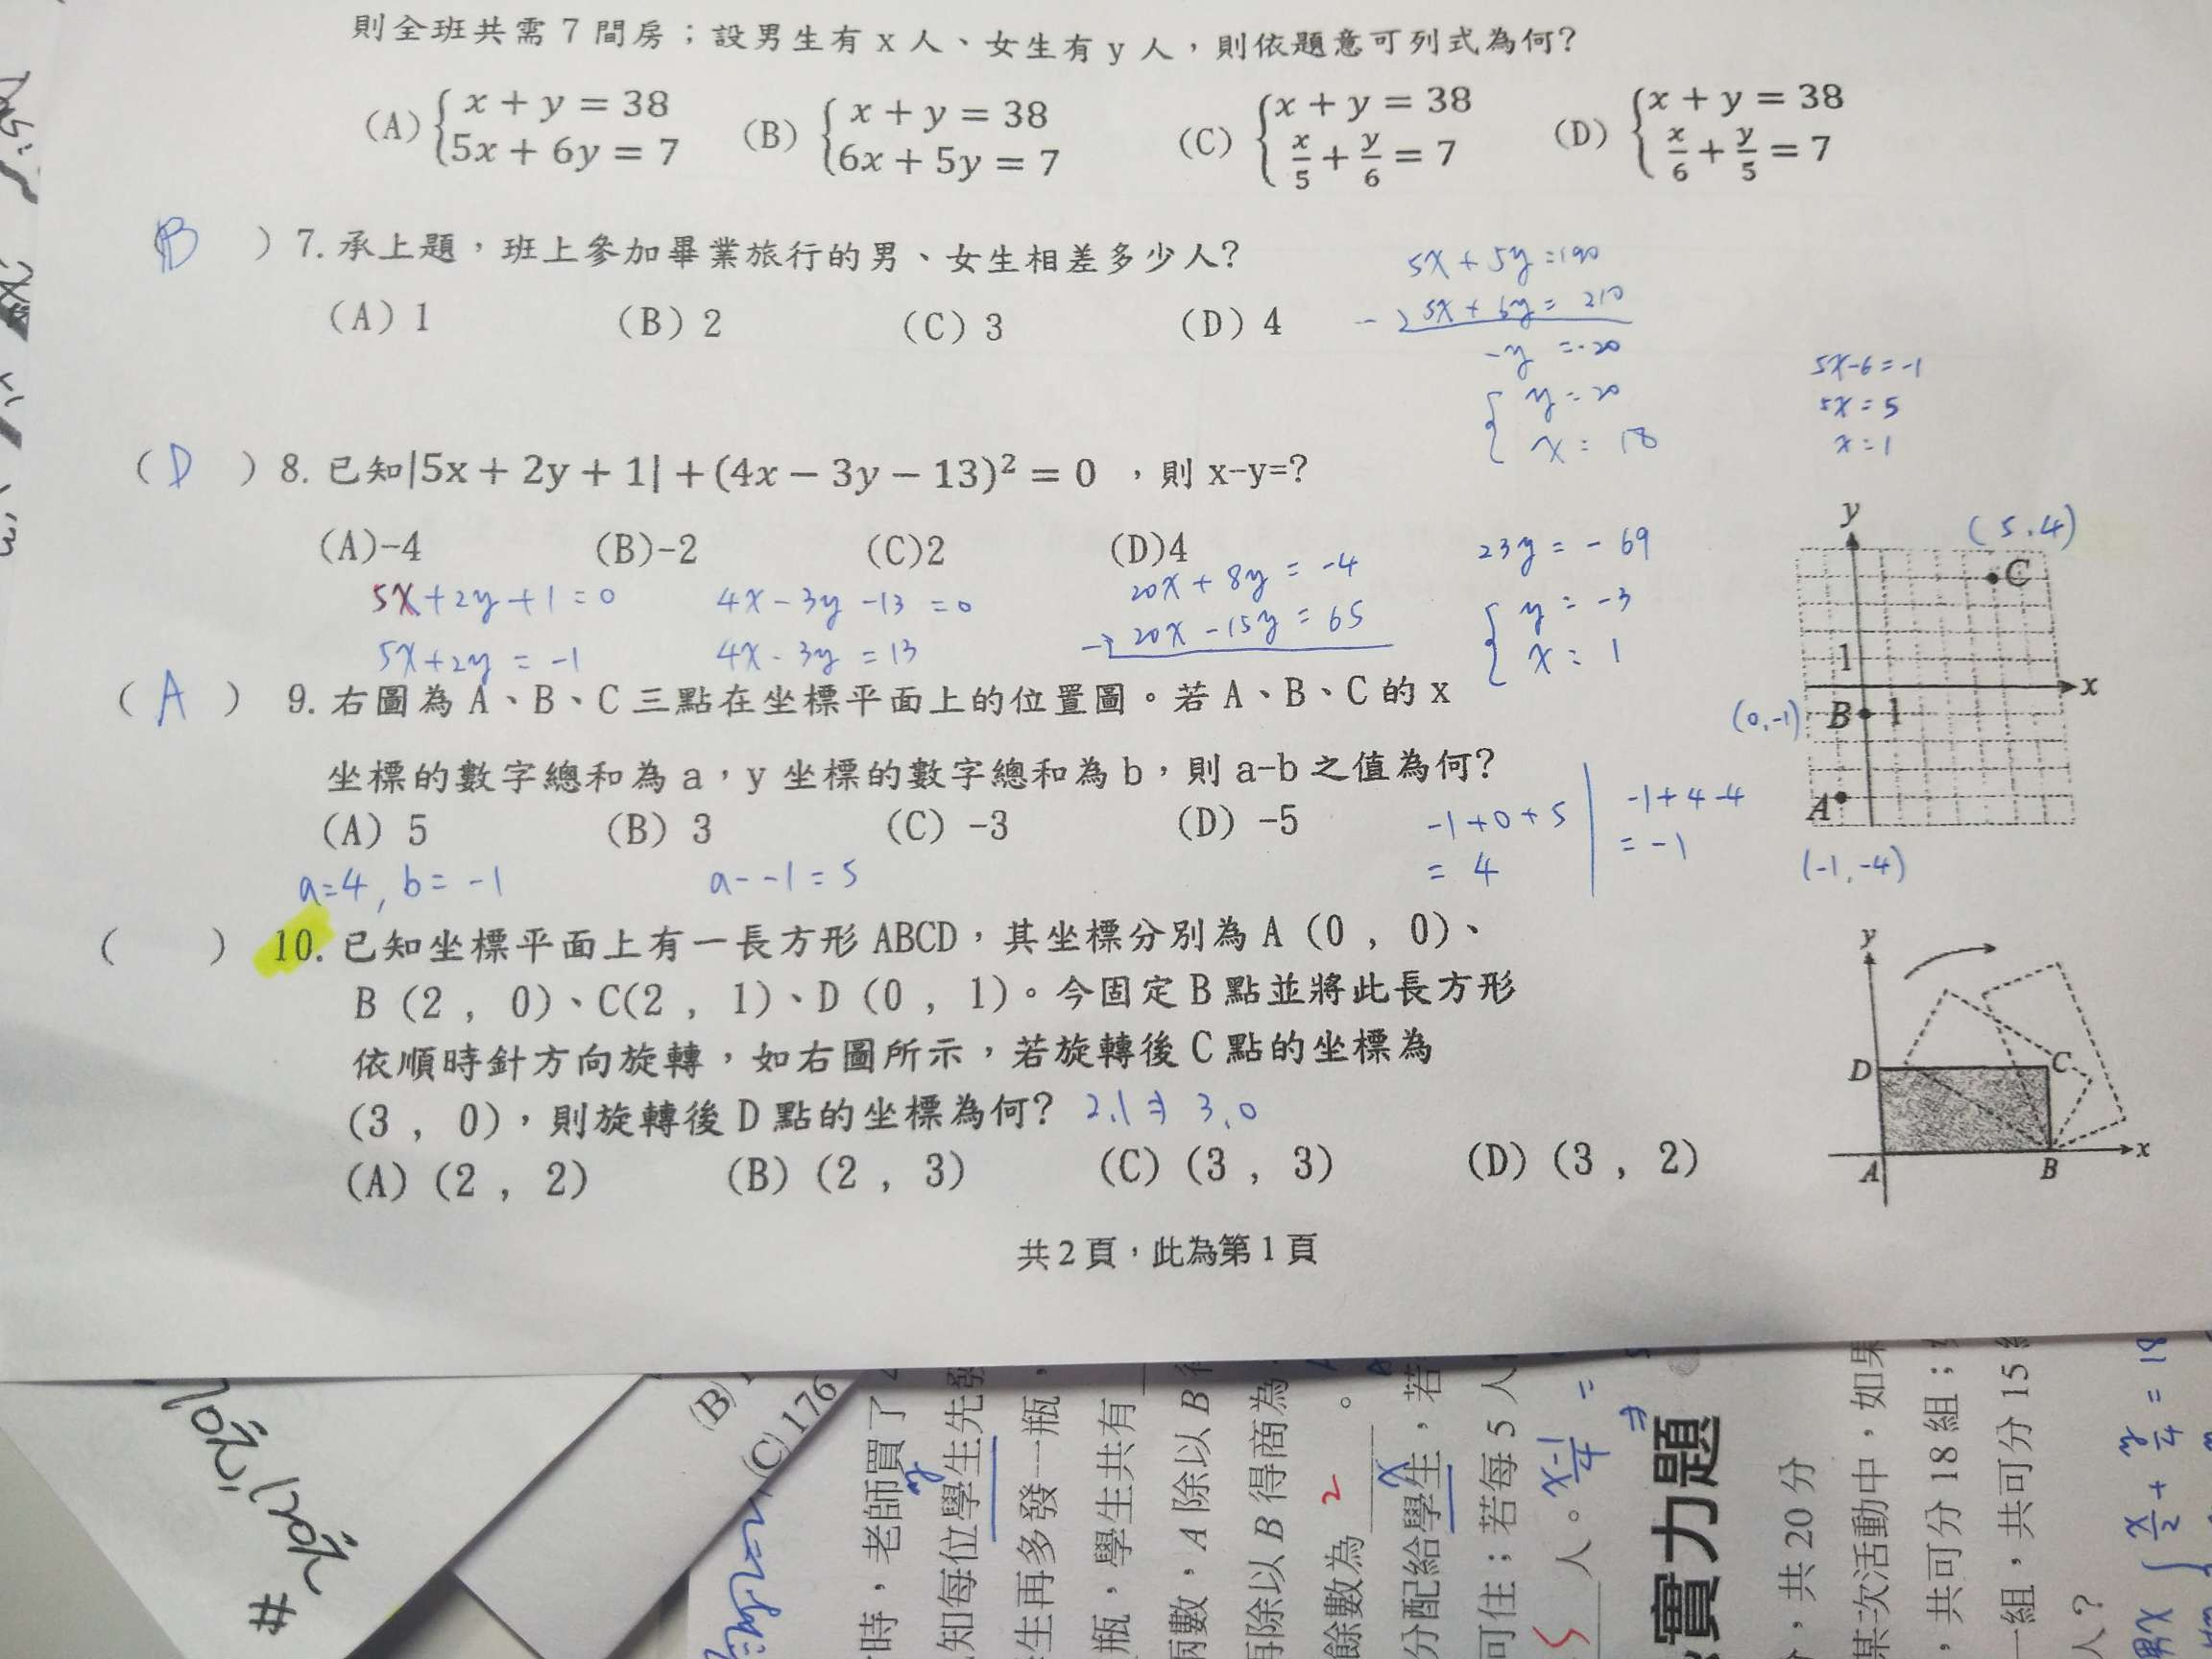 則全班共需 7 間房；設男生有 x 人、女生有 y 人，則依題意可列式為何?
(A) { x + y = 38
5x + 6y = 7
(B) { x + y = 38
6x + 5y = 7
(C) { x + y = 38
x/5 + y/6 = 7
(D) { x + y = 38
x/6 + y/5 = 7
(B) 7. 承上題，班上參加畢業旅行的男、女生相差多少人?
(A) 1 (B) 2 (C) 3 (D) 4
5x + 5y = 190
- ) 5x + 6y = 210
-y = -20
{ y = 20
x = 18
5x-6 = -1
5x = 5
x = 1
(D) 8. 已知|5x + 2y + 1| + (4x − 3y − 13)² = 0 ，則 x-y=?
(A)-4 (B)-2 (C)2 (D)4
5x+2y+1=0
5x+2y = -1
4x-3y-13=0
4x-3y=13
20x + 8y = -4
-) 20x - 15y = 65
23y = -69
{ y = -3
x = 1
(A) 9. 右圖為 A、B、C 三點在坐標平面上的位置圖。若 A、B、C 的 x
坐標的數字總和為 a，y 坐標的數字總和為 b，則 a-b 之值為何?
(A) 5 (B) 3 (C) -3 (D) -5
a=4, b=-1
a--1=5
-1+0+5
= 4
-1+4-4
= -1
y
(5,4)
C
1
x
(0,-1)
B
1
A
(-1,-4)
( ) 10. 已知坐標平面上有一長方形 ABCD，其坐標分別為 A (0 , 0)、
B (2 , 0)、C(2 , 1)、D (0 , 1)。今固定 B 點並將此長方形
依順時針方向旋轉，如右圖所示，若旋轉後 C 點的坐標為
(3 , 0)，則旋轉後 D 點的坐標為何? 2,1 ⇒ 3,0
(A) (2 , 2) (B) (2 , 3) (C) (3 , 3) (D) (3 , 2)
y
D
C
A
B
x
共 2 頁，此為第 1 頁
(B)
(C) 176
時，老師買了
知每位學生先發
生再多發一瓶，
瓶，學生共有
兩數，A 除以 B 得
再除以 B 得商為
餘數為 2 。
分配給學生，若
可住；若每 5 人
5 人。
實力題
，共 20 分
某次活動中，如果
，共可分 18 組；
一組，共可分 15 組
人？